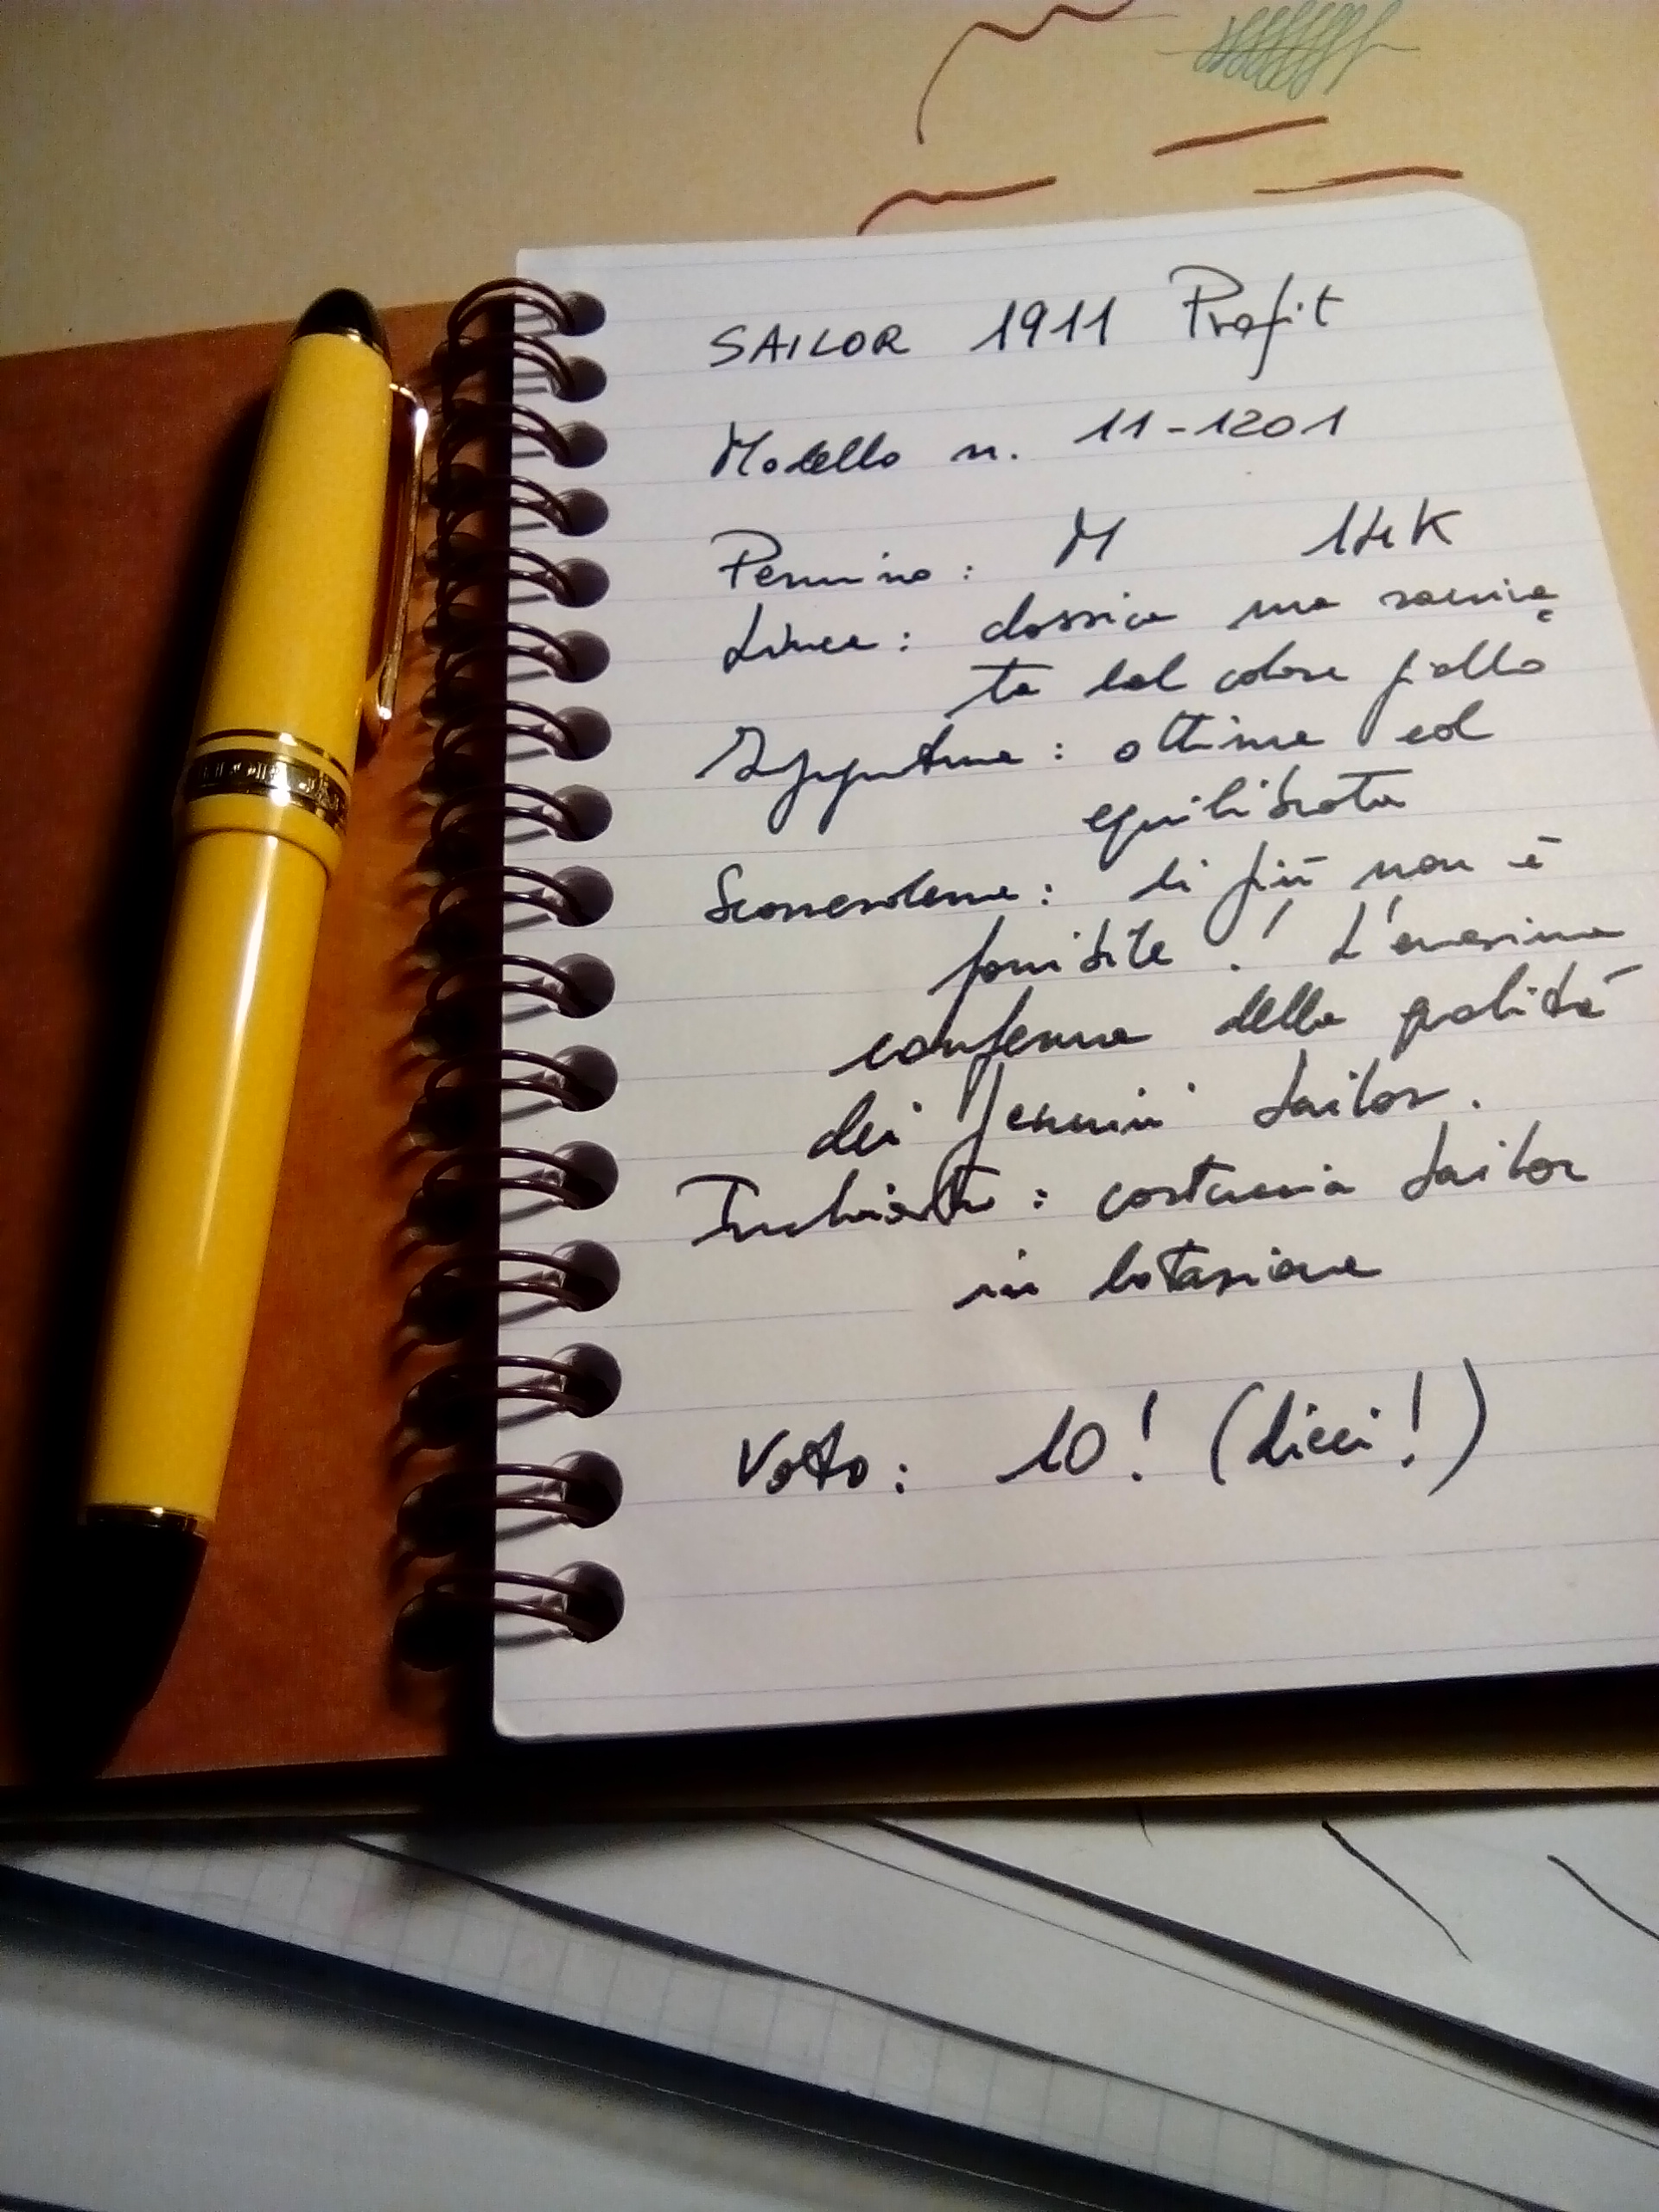 SAILOR 1911 Profit
Modello n. 11-1201
Pennino: M 14K
Linea: classica ma ravviva
ta dal colore giallo
Impugnatura: ottima ed
equilibrata
Scorrevolezza: di più non è
possibile! L'ennesima
conferma della qualità
dei pennini Sailor.
Inchiostro: cartuccia Sailor
in dotazione
Voto: 10! (dieci!)